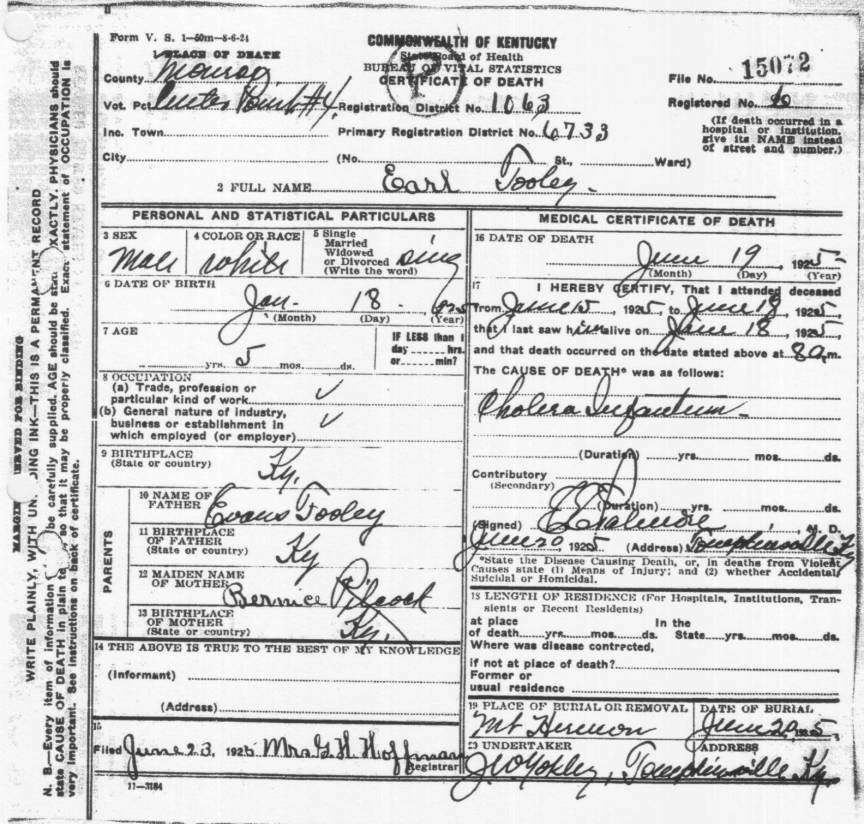 Form V. S. 1—50m—8-6-24
COMMONWEALTH OF KENTUCKY
State Board of Health
BUREAU OF VITAL STATISTICS
CERTIFICATE OF DEATH
1 PLACE OF DEATH
County Monroe
File No. 15072
Vot. Pct. Center Point #4 Registration District No. 1063
Registered No.
Inc. Town Primary Registration District No. 6733
(If death occurred in a hospital or institution, give its NAME instead of street and number.)
City (No. St., Ward)
2 FULL NAME Earl Tooley
PERSONAL AND STATISTICAL PARTICULARS
3 SEX Male
4 COLOR OR RACE white
5 Single Married Widowed or Divorced (Write the word) sing
6 DATE OF BIRTH
Jan- 18 - 1925
(Month) (Day) (Year)
7 AGE
IF LESS than 1 day hrs. or min?
yrs. 5 mos. ds.
8 OCCUPATION
(a) Trade, profession or particular kind of work ✓
(b) General nature of industry, business or establishment in which employed (or employer) ✓
9 BIRTHPLACE (State or country) Ky.
PARENTS
10 NAME OF FATHER Evans Tooley
11 BIRTHPLACE OF FATHER (State or country) Ky
12 MAIDEN NAME OF MOTHER Bernice Pilcock
13 BIRTHPLACE OF MOTHER (State or country) Ky.
14 THE ABOVE IS TRUE TO THE BEST OF MY KNOWLEDGE
(Informant)
(Address)
15
Filed June 23, 1925 Mrs G. H. Hoffman
Registrar
11—3184
MEDICAL CERTIFICATE OF DEATH
16 DATE OF DEATH
June 19, 1925
(Month) (Day) (Year)
17 I HEREBY CERTIFY, That I attended deceased
from June 15, 1925, to June 18, 1925,
that I last saw him alive on June 18, 1925,
and that death occurred on the date stated above at 8 a m.
The CAUSE OF DEATH* was as follows:
Cholera Infantum
(Duration) yrs. mos. ds.
Contributory
(Secondary)
(Duration) yrs. mos. ds.
(Signed) M. D.
June 20, 1925 (Address) Tompkinsville Ky
*State the Disease Causing Death, or, in deaths from Violent Causes state (1) Means of Injury; and (2) whether Accidental, Suicidal or Homicidal.
18 LENGTH OF RESIDENCE (For Hospitals, Institutions, Transients or Recent Residents)
at place of death yrs. mos. ds. In the State yrs. mos. ds.
Where was disease contracted,
if not at place of death?
Former or
usual residence
19 PLACE OF BURIAL OR REMOVAL Mt Hermon
DATE OF BURIAL June 20, 1925
20 UNDERTAKER J W Yokley,
ADDRESS Tompkinsville Ky.
WRITE PLAINLY, WITH INK—THIS IS A PERMANENT RECORD
N. B.—Every item of information be carefully supplied. AGE should be EXACTLY. PHYSICIANS should
state CAUSE OF DEATH in plain so that it may be properly classified. Exact statement of OCCUPATION is
very important. See instructions on back of certificate.